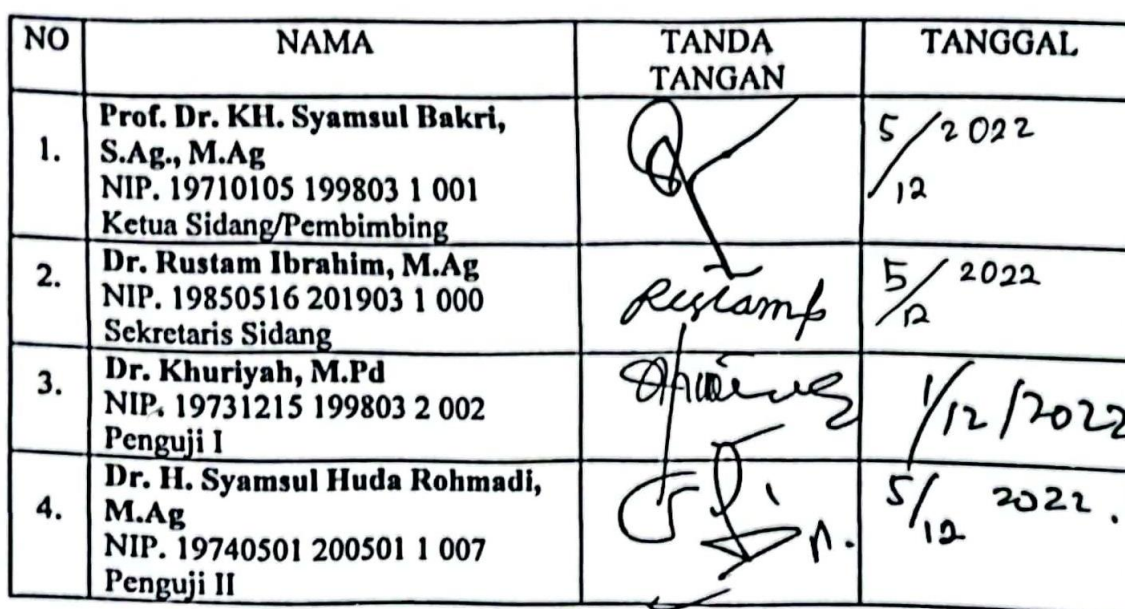 NO NAMA TANDA TANGAN TANGGAL
1. Prof. Dr. KH. Syamsul Bakri,
S.Ag., M.Ag
NIP. 19710105 199803 1 001
Ketua Sidang/Pembimbing
5/12 2022
2. Dr. Rustam Ibrahim, M.Ag
NIP. 19850516 201903 1 000
Sekretaris Sidang
5/12 2022
3. Dr. Khuriyah, M.Pd
NIP. 19731215 199803 2 002
Penguji I
1/12/2022
4. Dr. H. Syamsul Huda Rohmadi,
M.Ag
NIP. 19740501 200501 1 007
Penguji II
5/12 2022.